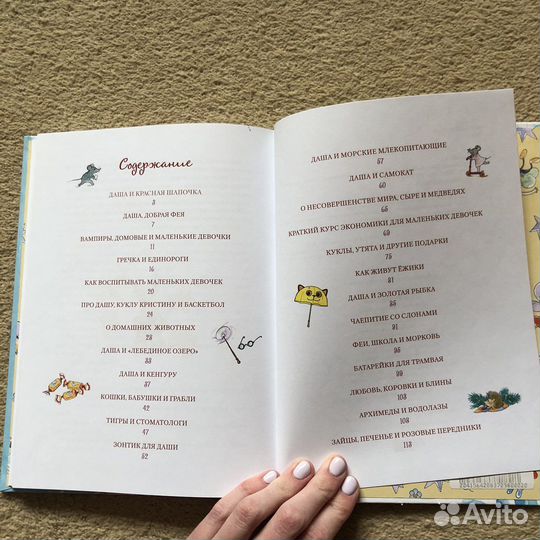 Содержание
ДАША И КРАСНАЯ ШАПОЧКА
3
ДАША, ДОБРАЯ ФЕЯ
7
ВАМПИРЫ, ДОМОВЫЕ И МАЛЕНЬКИЕ ДЕВОЧКИ
11
ГРЕЧКА И ЕДИНОРОГИ
16
КАК ВОСПИТЫВАТЬ МАЛЕНЬКИХ ДЕВОЧЕК
20
ПРО ДАШУ, КУКЛУ КРИСТИНУ И БАСКЕТБОЛ
24
О ДОМАШНИХ ЖИВОТНЫХ
28
ДАША И «ЛЕБЕДИНОЕ ОЗЕРО»
33
ДАША И КЕНГУРУ
37
КОШКИ, БАБУШКИ И ГРАБЛИ
42
ТИГРЫ И СТОМАТОЛОГИ
47
ЗОНТИК ДЛЯ ДАШИ
52
ДАША И МОРСКИЕ МЛЕКОПИТАЮЩИЕ
57
ДАША И САМОКАТ
60
О НЕСОВЕРШЕНСТВЕ МИРА, СЫРЕ И МЕДВЕДЯХ
65
КРАТКИЙ КУРС ЭКОНОМИКИ ДЛЯ МАЛЕНЬКИХ ДЕВОЧЕК
69
КУКЛЫ, УТЯТА И ДРУГИЕ ПОДАРКИ
75
КАК ЖИВУТ ЁЖИКИ
81
ДАША И ЗОЛОТАЯ РЫБКА
85
ЧАЕПИТИЕ СО СЛОНАМИ
91
ФЕИ, ШКОЛА И МОРКОВЬ
95
БАТАРЕЙКИ ДЛЯ ТРАМВАЯ
99
ЛЮБОВЬ, КОРОВКИ И БЛИНЫ
103
АРХИМЕДЫ И ВОДОЛАЗЫ
108
ЗАЙЦЫ, ПЕЧЕНЬЕ И РОЗОВЫЕ ПЕРЕДНИКИ
113
Avito